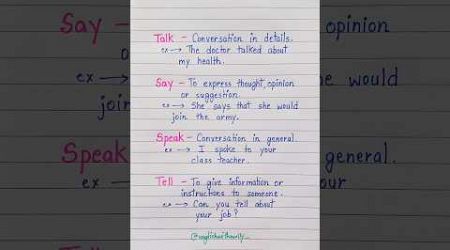 Talk - Conversation in details.
ex → The doctor talked about
my health.
Say - To express thought, opinion
or suggestion.
ex → She says that she would
join the army.
Speak - Conversation in general.
ex → I spoke to your
class teacher.
Tell - To give information or
instructions to someone.
ex → Can you tell about
your job?